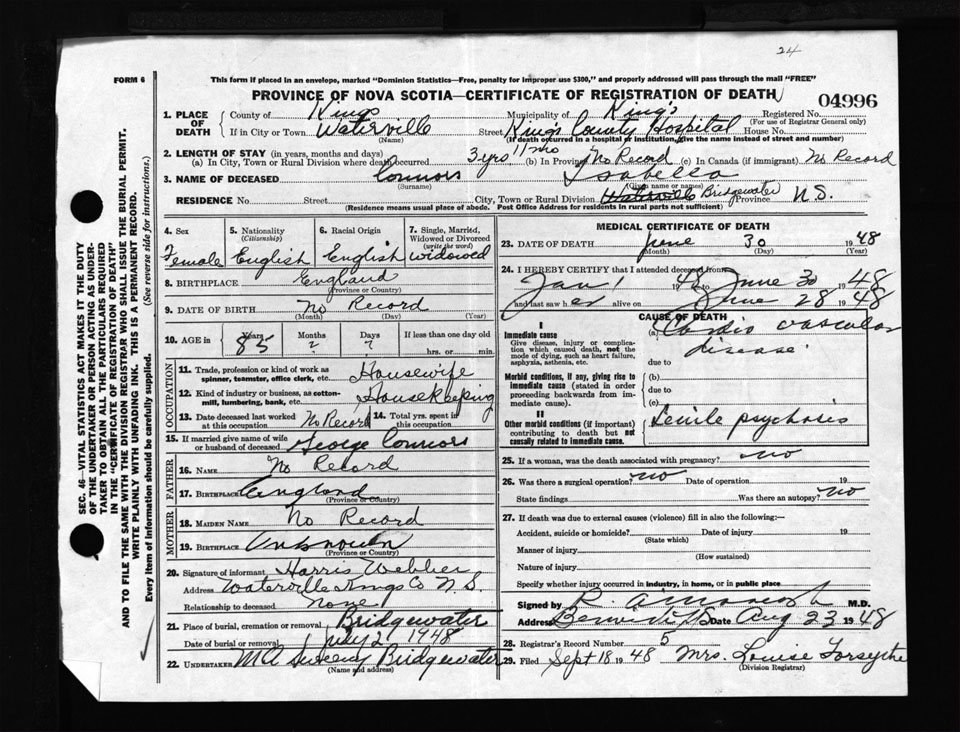 24
FORM 6
This form if placed in an envelope, marked "Dominion Statistics—Free, penalty for improper use $300," and properly addressed will pass through the mail "FREE"
PROVINCE OF NOVA SCOTIA—CERTIFICATE OF REGISTRATION OF DEATH
04996
1. PLACE OF DEATH
County of Kings Municipality of King's Registered No.
(For use of Registrar General only)
If in City or Town Waterville Street King's County Hospital House No.
(Name) (If death occurred in a hospital or institution, give the name instead of street and number)
2. LENGTH OF STAY (in years, months and days)
(a) In City, Town or Rural Division where death occurred 3 yrs 11 mo (b) In Province No Record (c) In Canada (if immigrant) No Record
3. NAME OF DECEASED Connors Isabella
(Surname) (Given name or names)
RESIDENCE No. Street City, Town or Rural Division Waterville Bridgewater Province N.S.
(Residence means usual place of abode. Post Office Address for residents in rural parts not sufficient)
4. Sex
Female
5. Nationality
(Citizenship)
English
6. Racial Origin
English
7. Single, Married, Widowed or Divorced
(write the word)
widowed
8. BIRTHPLACE England
(Province or Country)
9. DATE OF BIRTH No Record
(Month) (Day) (Year)
10. AGE in Years Months Days If less than one day old
85 ? ? hrs. or min.
OCCUPATION
11. Trade, profession or kind of work as spinner, teamster, office clerk, etc. Housewife
12. Kind of industry or business, as cotton-mill, lumbering, bank, etc. Housekeeping
13. Date deceased last worked at this occupation No Record
14. Total yrs. spent in this occupation
15. If married give name of wife or husband of deceased George Connors
FATHER
16. NAME No Record
17. BIRTHPLACE England
(Province or Country)
MOTHER
18. MAIDEN NAME No Record
19. BIRTHPLACE Unknown
(Province or Country)
20. Signature of informant Harris Webber
Address Waterville Kings Co N.S.
Relationship to deceased None
21. Place of burial, cremation or removal Bridgewater
Date of burial or removal July 2 1948
22. UNDERTAKER M A Sweeny Bridgewater
(Name and address)
MEDICAL CERTIFICATE OF DEATH
23. DATE OF DEATH June 30 1948
(Month) (Day) (Year)
24. I HEREBY CERTIFY that I attended deceased from
Jan 1 1948 to June 30 1948
and last saw her alive on June 28 1948
CAUSE OF DEATH
I
Immediate cause
Give disease, injury or complication which caused death, not the mode of dying, such as heart failure, asphyxia, asthenia, etc.
(a) Cardio vascular
disease
due to
Morbid conditions, if any, giving rise to immediate cause (stated in order proceeding backwards from immediate cause).
(b)
due to
(c)
II
Other morbid conditions (if important) contributing to death but not causally related to immediate cause.
Senile psychosis
25. If a woman, was the death associated with pregnancy? no
26. Was there a surgical operation? no Date of operation 19
State findings Was there an autopsy? no
27. If death was due to external causes (violence) fill in also the following:—
Accident, suicide or homicide? Date of injury 19
(State which)
Manner of injury
(How sustained)
Nature of injury
Specify whether injury occurred in industry, in home, or in public place
Signed by M.D.
Address Berwick NS Date Aug 23 1948
28. Registrar's Record Number 5
29. Filed Sept 18 1948 Mrs. Louise Forsythe
(Division Registrar)
SEC. 46—VITAL STATISTICS ACT MAKES IT THE DUTY
OF THE UNDERTAKER OR PERSON ACTING AS UNDER-
TAKER TO OBTAIN ALL THE PARTICULARS REQUIRED
IN THE "CERTIFICATE OF REGISTRATION OF DEATH"
AND TO FILE THE SAME WITH THE DIVISION REGISTRAR WHO SHALL ISSUE THE BURIAL PERMIT.
WRITE PLAINLY WITH UNFADING INK. THIS IS A PERMANENT RECORD.
Every item of information should be carefully supplied. (See reverse side for instructions.)